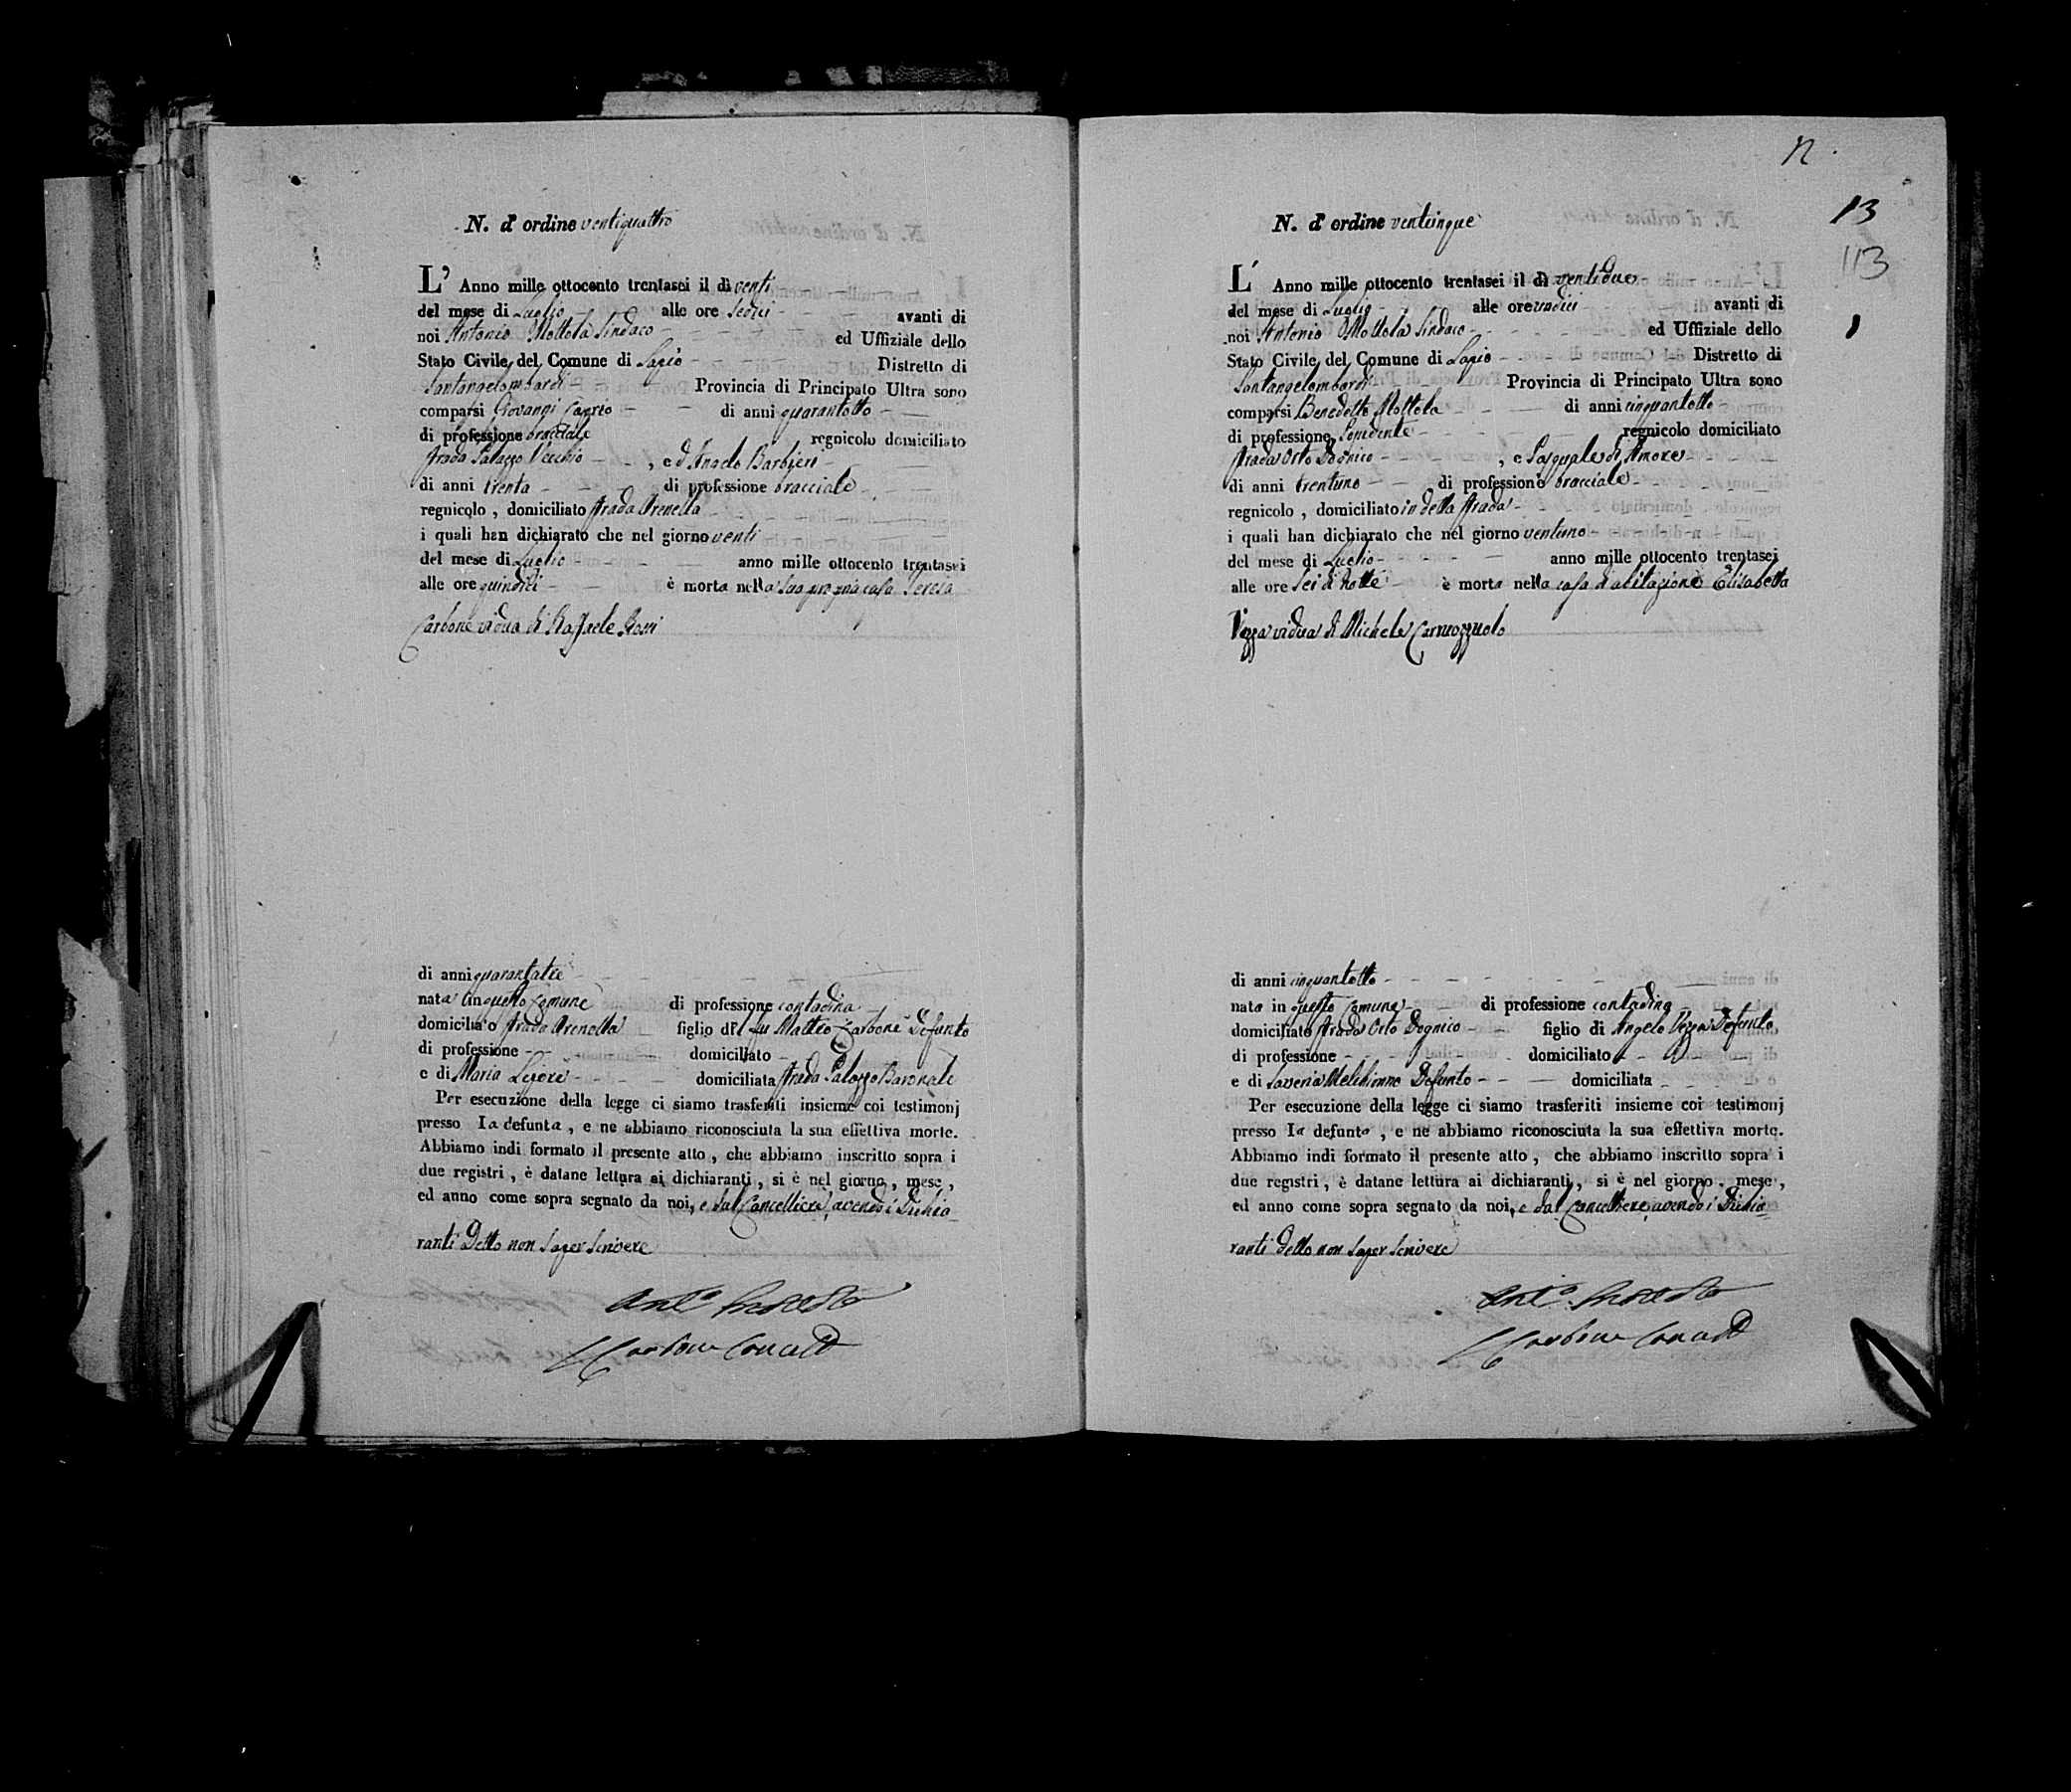 N. d' ordine ventiquattro
L' Anno mille ottocento trentasei il dì venti
del mese di Luglio alle ore sedici avanti di
noi Antonio Mottola Sindaco ed Uffiziale dello
Stato Civile del Comune di Lapio Distretto di
Santangelombardi Provincia di Principato Ultra sono
comparsi Giovanni Caprio di anni quarantotto
di professione bracciale regnicolo domiciliato
strada Palazzo Vecchio , ed Angelo Barbieri
di anni trenta di professione bracciale
regnicolo , domiciliato strada Arenella
i quali han dichiarato che nel giorno venti
del mese di Luglio anno mille ottocento trentasei
alle ore quindici è morta nella sua propria casa Teresa
Carbone vidua di Raffaele Rossi
di anni quarantatre
nata in questo Comune di professione contadina
domiciliato strada Arenella figlio di fu Matteo Carbone Defunto
di professione domiciliato
e di Maria domiciliata strada Palazzo Baronale
Per esecuzione della legge ci siamo trasferiti insieme coi testimonj
presso la defunta , e ne abbiamo riconosciuta la sua effettiva morte.
Abbiamo indi formato il presente atto , che abbiamo inscritto sopra i
due registri , è datane lettura ai dichiaranti , si è nel giorno , mese ,
ed anno come sopra segnato da noi, e dal Cancelliere, avendo i Dichia
ranti Detto non saper scrivere
Ant.o Mottola
Carbone Canc.
12
13
113
N. d' ordine venticinque
L' Anno mille ottocento trentasei il dì ventidue
del mese di Luglio alle ore undici avanti di
noi Antonio Mottola Sindaco ed Uffiziale dello
Stato Civile del Comune di Lapio Distretto di
Santangelombardi Provincia di Principato Ultra sono
comparsi Benedetto Mottola di anni cinquantotto
di professione regnicolo domiciliato
strada Orto Dognico , e Pasquale di Amore
di anni trentuno di professione bracciale
regnicolo , domiciliato in detta strada
i quali han dichiarato che nel giorno ventuno
del mese di Luglio anno mille ottocento trentasei
alle ore sei di notte è morta nella casa d'abitazione Elisabetta
Vozza vidua di Michele Carmozzuolo
di anni cinquantotto
nata in questo Comune di professione contadina
domiciliato strada Orto Dognico figlio di Angelo Vozza Defunto
di professione domiciliato
e di Saveria Melchionno Defunto domiciliata
Per esecuzione della legge ci siamo trasferiti insieme coi testimonj
presso la defunta , e ne abbiamo riconosciuta la sua effettiva morte.
Abbiamo indi formato il presente atto , che abbiamo inscritto sopra i
due registri , è datane lettura ai dichiaranti , si è nel giorno , mese ,
ed anno come sopra segnato da noi, e dal Cancelliere, avendo i Dichia
ranti detto non saper scrivere
Ant.o Mottola
Carbone Canc.